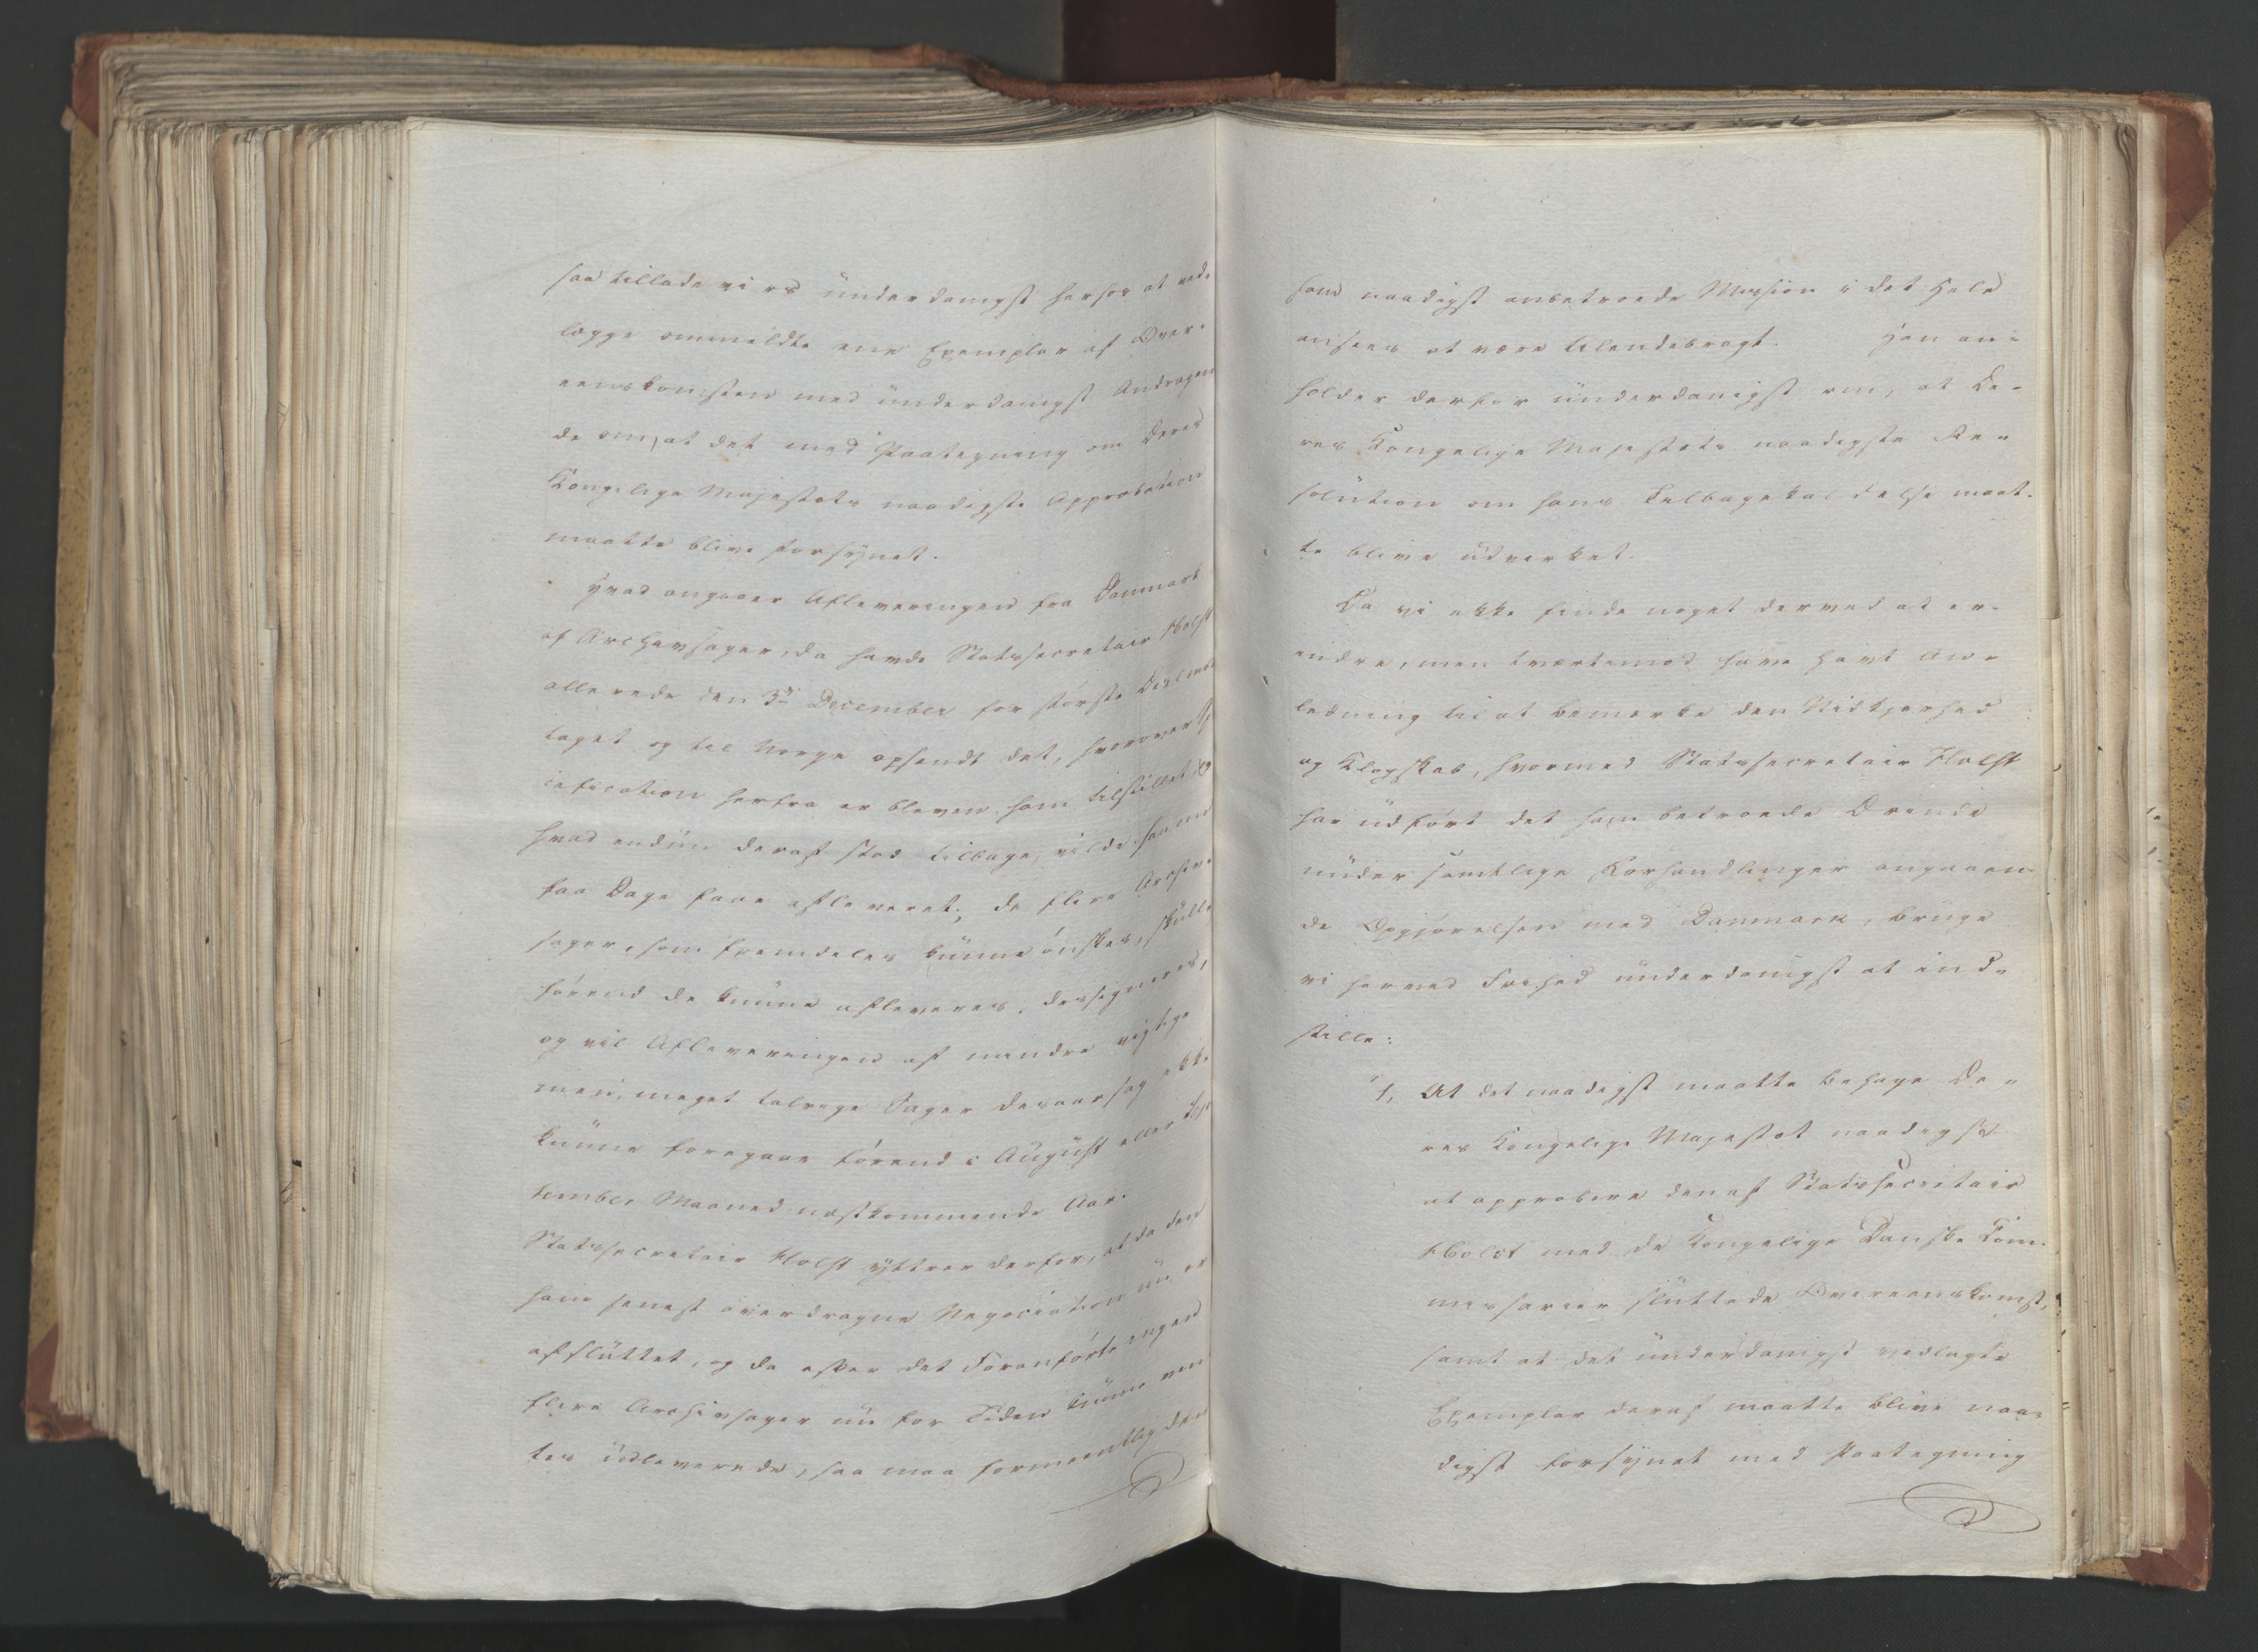 saa tillade vi os ünderdanigst herhos at ved-
lægge ommeldte ene Exemplar af Over-
eenskomsten med ünderdanigst Andragen
de om, at det med Paategning om Deres
Kongelige Majestæts naadigste Approbation
maatte blive forsÿnet.
Hvad angaaer Afleveringen fra Danmark
af Archivsager, da havde Statssecretair Holst
allerede den 3die December for største Deelen
taget og til Norge opsendt det, hvorover
hertra er bleven ham tilstillet, og
hvad endnü deraf stod tilbage, vilde han om
faa Dage faae afleveret; de flere Archiv-
sager, som fremdeles künne ønskes, skülle
førend de künne afleveres, dessigneres,
og vil Afleveringen af mindre vigtige
men meget talrige Sager desaarsag ikke
künne foregaae førend i Augüst eller Sep
tember Maaned næstkommende Aar.
Statssecretair Holst ÿttrer derfor, at da den
ham senest overdragne Negociation nü er
afslüttet, og da efter det Foranførte ingen
flere Archivsager nü for Tiden künne ven
tes üdleverede, saa maa formeentlig den
ham naadigst anbetroede Mission i det Hele
ansees at være tilendebragt. Han an-
holder derfor ünderdanigst om, at De-
res Kongelige Majestæts naadigste Re-
solütion om hans Tilbagekaldelse maat-
te blive üdvirket.
Da vi ikke finde noget derved at er-
indre, men tværtimod have havt An-
ledning til at bemærke den Nidkjærhed
og Klogskab, hvormed Statssecretair Holst
har üdført det ham betroede Ærinde
ünder samtlige Forhandlinger angaaen-
de Opgjørelsen med Danmark, brüge
vi herved Frihed ünderdanigst at ind-
stille:
1, At det naadigst maatte behage De-
res Kongelige Majestæt naadigst
at approbere den af Statssecretair
Holst med de Kongelige Danske Com-
missarier slüttede Overeenskomst,
samt at det ünderdanigst vedlagte
Exemplar deraf maatte blive naa-
digst forsÿnet med Paategning